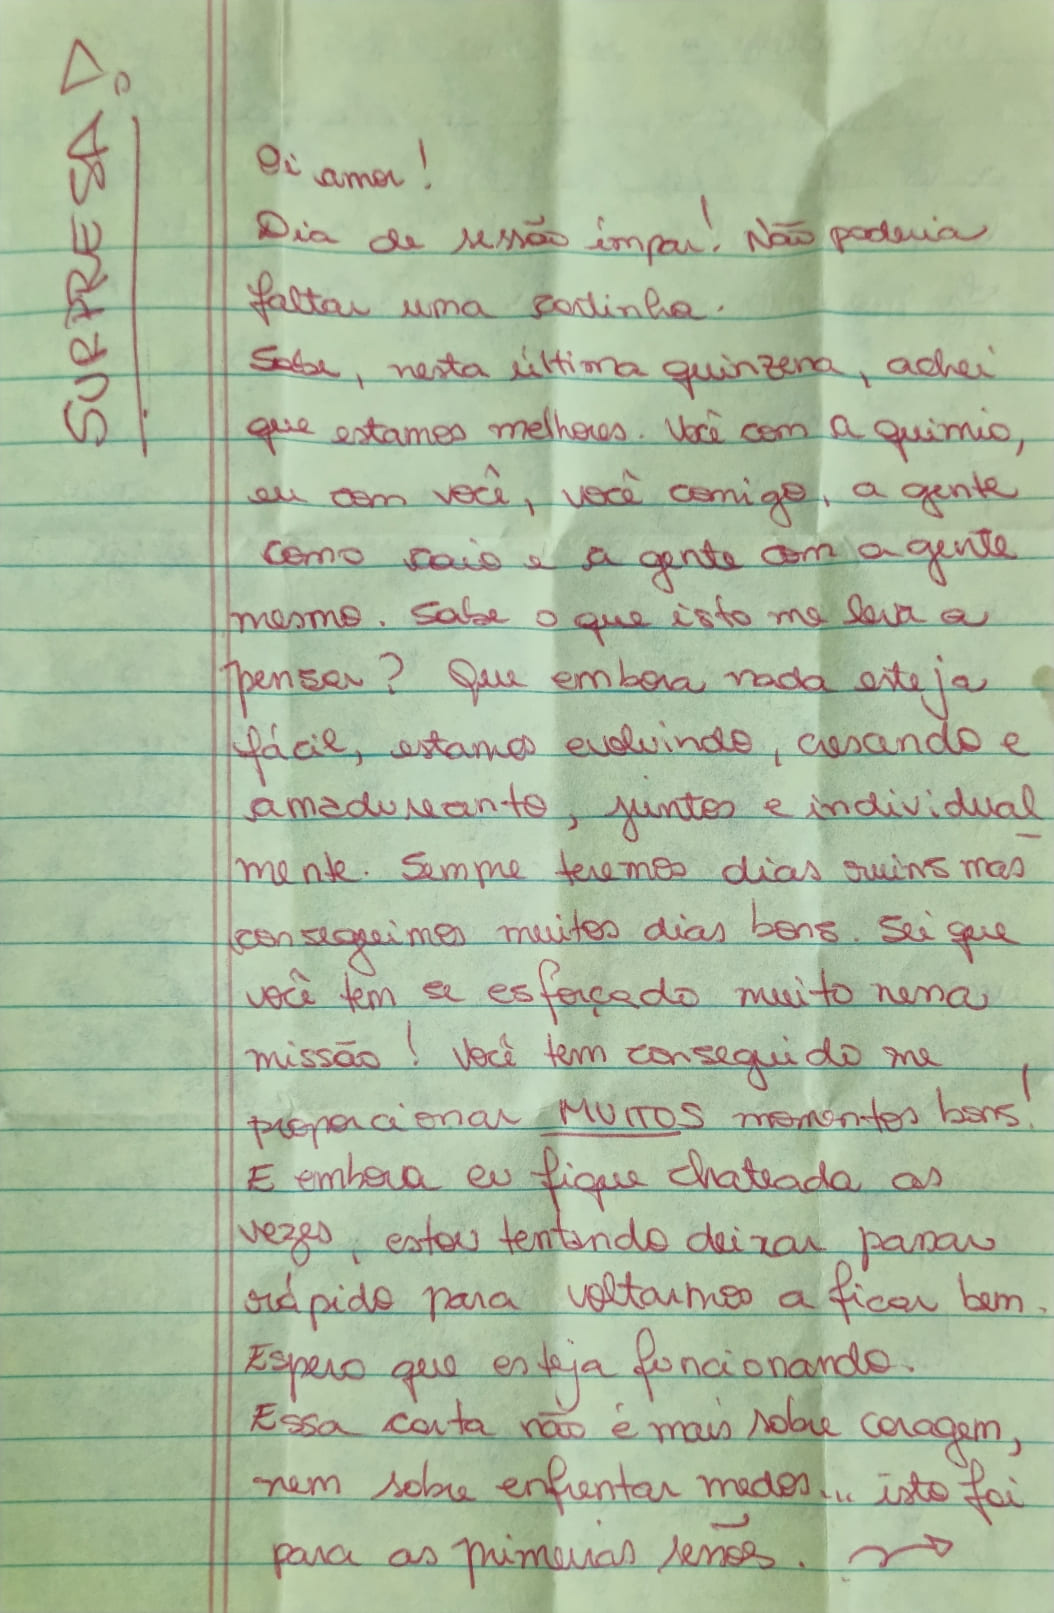 SURPRESA!
Oi amor!
Dia de sessão ímpar! Não poderia
faltar uma cartinha.
Sabe, nesta última quinzena, achei
que estamos melhores. Você com a quimio,
eu com você, você comigo, a gente
como caio e a gente com a gente
mesmo. Sabe o que isto me leva a
pensar? Que embora nada esteja
fácil, estamos evoluindo, crescendo e
amadurecento, juntos e individual
mente. Sempre teremos dias ruins mas
conseguimos muitos dias bons. Sei que
você tem se esforçado muito nessa
missão! Você tem conseguido me
proporcionar MUITOS momentos bons!
E embora eu fique chateada as
vezes, estou tentando deixar passar
rápido para voltarmos a ficar bem.
Espero que esteja funcionando.
Essa carta não é mais sobre coragem,
nem sobre enfrentar medos... isto foi
para as primeiras sessões.